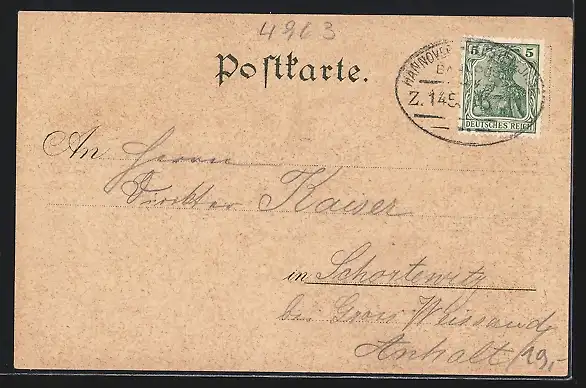 4963
Postkarte.
5 5
HANNOVER
BAHNPOST
Z. 145
DEUTSCHES REICH
An Herrn
Direktor Kaiser
in Schortewitz
bei Gross Weissand
Anhalt
19,-